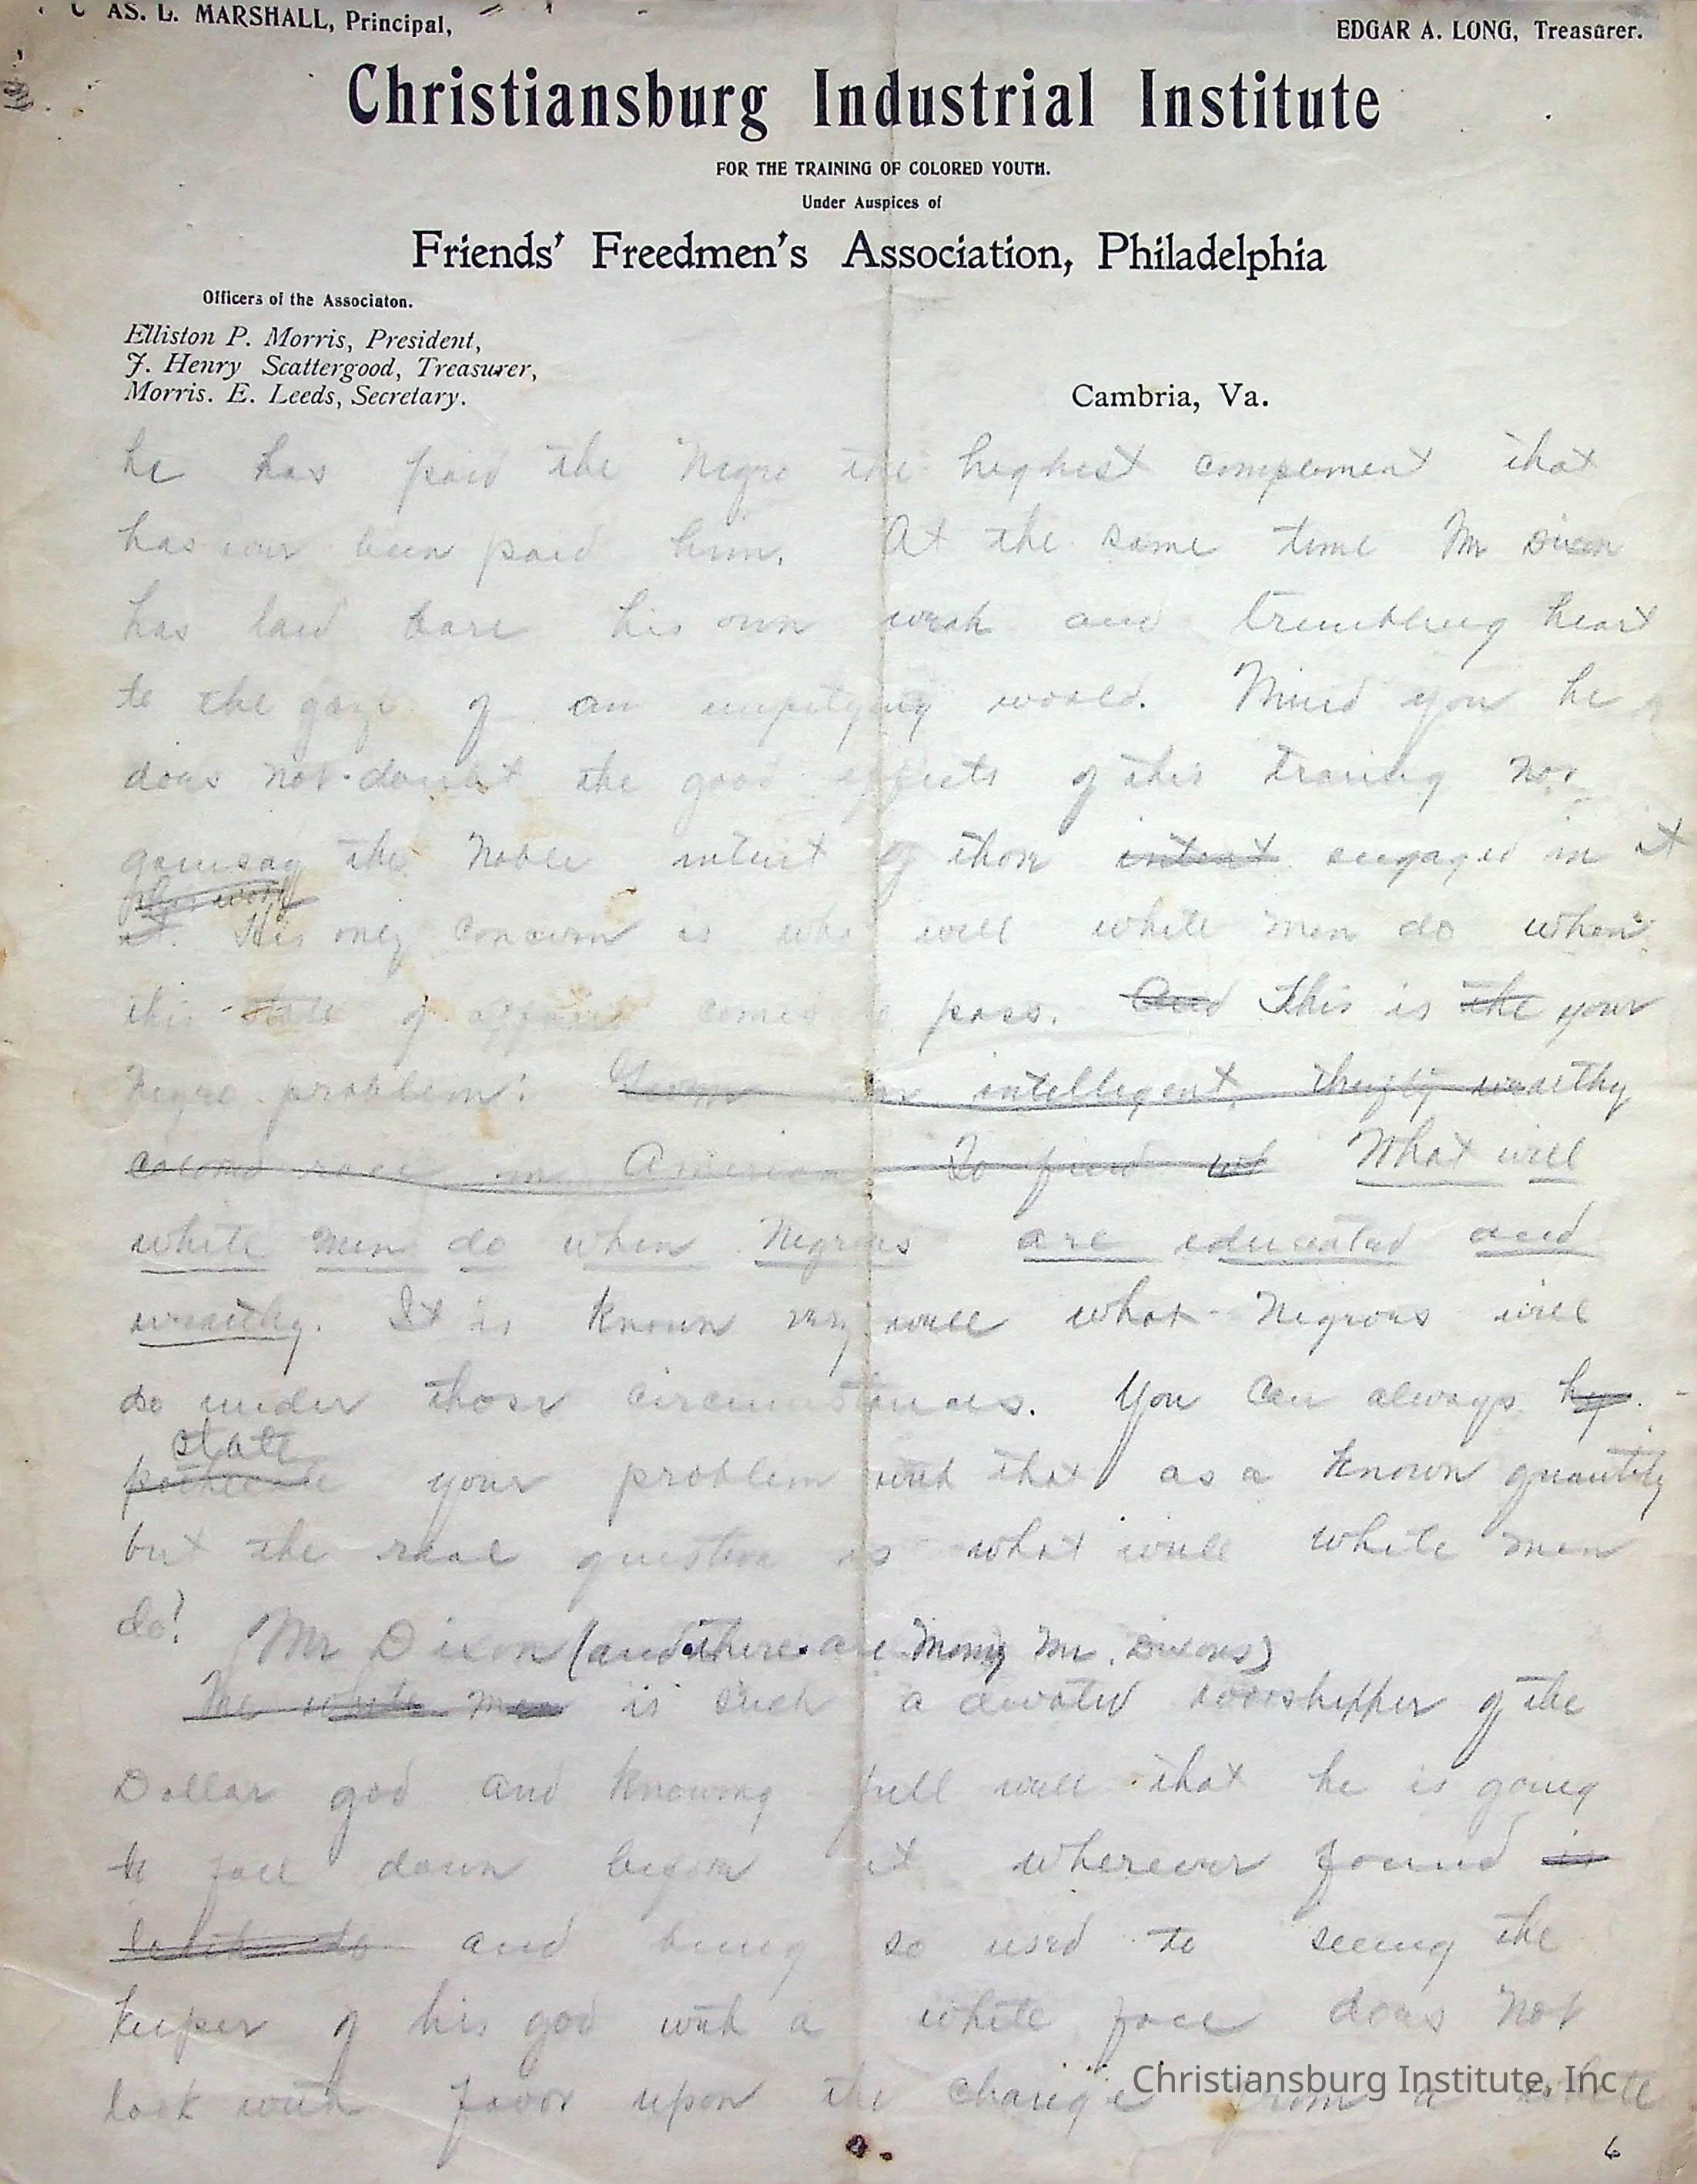 AS. L. MARSHALL, Principal,
EDGAR A. LONG, Treasurer.
Christiansburg Industrial Institute
FOR THE TRAINING OF COLORED YOUTH.
Under Auspices of
Friends' Freedmen's Association, Philadelphia
Officers of the Associaton.
Elliston P. Morris, President,
J. Henry Scattergood, Treasurer,
Morris. E. Leeds, Secretary.
Cambria, Va.
he has paid the Negro the highest complement that
has ever been paid him. At the same time Mr Dixon
has laid bare his own weak and trembling heart
to the gaze of an unpitying world. Mind you he
does not doubt the good effects of this training nor
gainsay the noble intent of those intent engaged in it
this work
it. His only concern is what will white men do when
this state of affairs comes to pass. And This is the your
Negro problem: Given an intelligent, thrifty wealthy
colored race in America To find wh What will
white men do when Negroes are educated and
wealthy. It is known very well what Negroes will
do under those circumstances. You can always
state
your problem with that as a known quantity
but the real question is what will white men
do?
Mr Dixon (and there are many Mr. Dixons)
The white man is such a devoted worshipper of the
Dollar god and knowing full well that he is going
to fall down before it wherever found is
and being so used to seeing the
keeper of his god with a white face does not
look with favor upon the change from a white
Christiansburg Institute, Inc
6